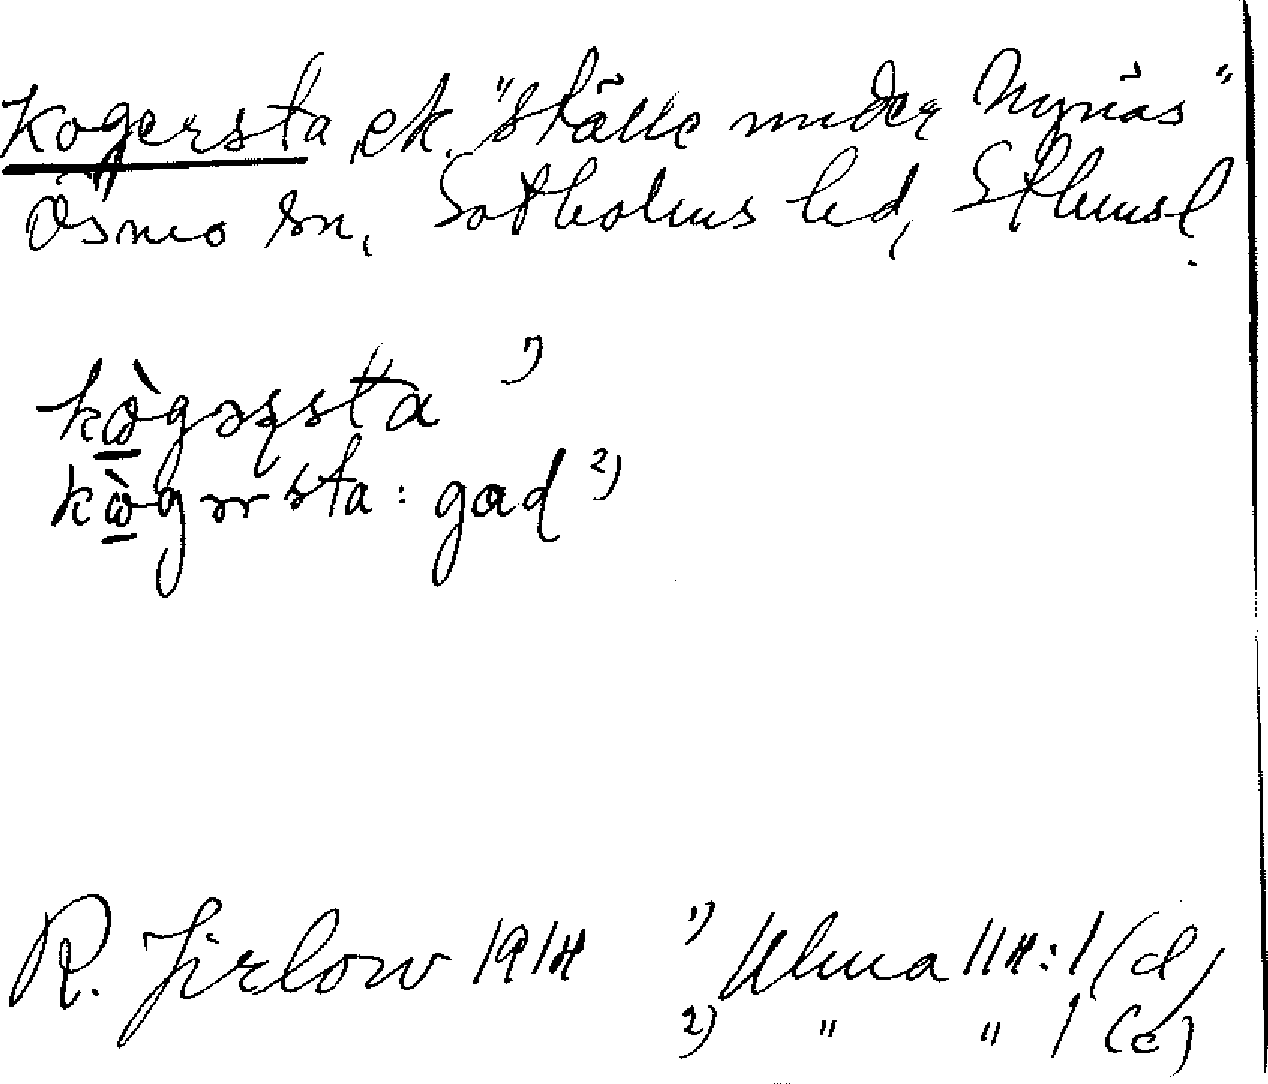 Kogersta ek. "ställe under Nynäs"
Ösmo sn, Sotholms hd, Sthmsl.
kὼgəʂsta 1)
kὼgərsta: gɑd 2)
R. Jirlow 1914 1) Ulma 114:1 (d)
2) " " 1 (c)